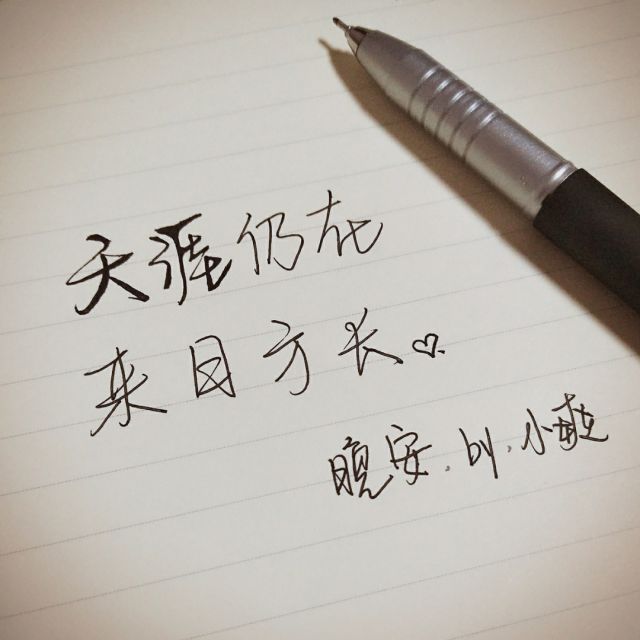 天涯仍在
来日方长♡.
晚安.by.小